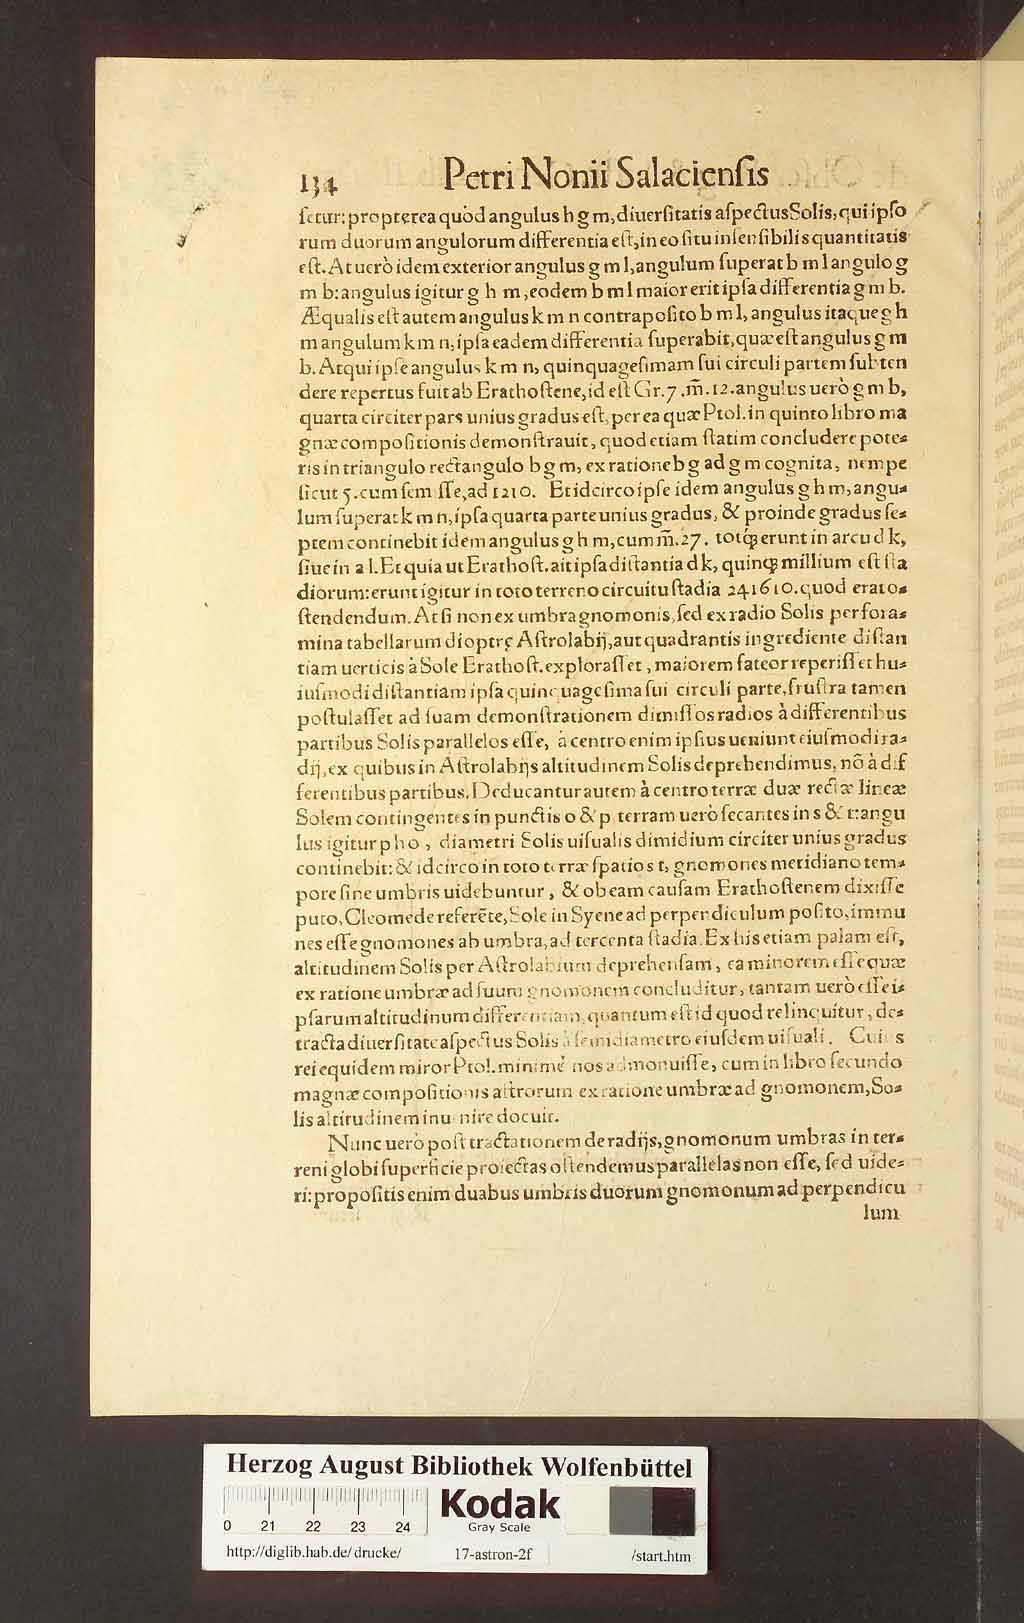 134 Petri Nonii Salaciensis
setur: propterea quòd angulus h g m, diuersitatis aspectus Solis, qui ipso
rum duorum angulorum differentia est, in eo situ insensibilis quantitatis
est. At uerò idem exterior angulus g m l, angulum superat b m l angulo g
m b: angulus igitur g h m, eodem b m l maior erit ipsa differentia g m b.
Æqualis est autem angulus k m n contraposito b m l, angulus itaque g h
m angulum k m n, ipsa eadem differentia superabit, quæ est angulus g m
b. Atqui ipse angulus k m n, quinquagesimam sui circuli partem subten
dere repertus fuit ab Erathostene, id est Gr. 7 .m̃. 12. angulus uerò g m b,
quarta circiter pars unius gradus est, per ea quæ Ptol. in quinto libro ma
gnæ compositionis demonstrauit, quod etiam statim concludere pote-
ris in triangulo rectangulo b g m, ex ratione b g ad g m cognita, nempe
sicut 5. cum semisse, ad 1210. Et idcirco ipse idem angulus g h m, angu-
lum superat k m n, ipsa quarta parte unius gradus, & proinde gradus se-
ptem continebit idem angulus g h m, cum m̃. 27. totq́; erunt in arcu d k,
siue in a l. Et quia ut Erathost. ait ipsa distantia d k, quinq; millium est sta
diorum: erunt igitur in toto terreno circuitu stadia 241610. quod erat o-
stendendum. At si non ex umbra gnomonis, sed ex radio Solis per fora-
mina tabellarum dioptrę Astrolabij, aut quadrantis ingrediente distan
tiam uerticis à Sole Erathost. explorasset, maiorem fateor reperisset hu-
iusmodi distantiam ipsa quinquagesima sui circuli parte, frustra tamen
postulasset ad suam demonstrationem dimissos radios à differentibus
partibus Solis parallelos esse, à centro enim ipsius ueniunt eiusmodi ra-
dij, ex quibus in Astrolabijs altitudinem Solis deprehendimus, nõ à dif
ferentibus partibus. Deducantur autem à centro terræ duæ rectæ lineæ
Solem contingentes in punctis o & p, terram uerò secantes in s & t: angu
lus igitur p h o, diametri Solis uisualis dimidium circiter unius gradus
continebit: & idcirco in toto terræ spatio s t, gnomones meridiano tem-
pore sine umbris uidebuntur, & ob eam causam Erathostenem dixisse
puto, Cleomede referẽte, Sole in Syene ad perpendiculum posito, immu
nes esse gnomones ab umbra, ad tercenta stadia. Ex his etiam palam est,
altitudinem Solis per Astrolabium deprehensam, ea minorem esse quæ
ex ratione umbræ ad suum gnomonem concluditur, tantam uerò esse i-
psarum altitudinum differentiam, quantum est id quod relinquitur, de-
tracta diuersitate aspectus Solis à semidiametro eiusdem uisuali. Cuius
rei equidem miror Ptol. minimè nos admonuisse, cum in libro secundo
magnæ compositionis astrorum ex ratione umbræ ad gnomonem, So-
lis altitudinem inuenire docuit.
Nunc uerò post tractationem de radijs, gnomonum umbras in ter-
reni globi superficie proiectas ostendemus parallelas non esse, sed uide-
ri: propositis enim duabus umbris duorum gnomonum ad perpendicu
lum
Herzog August Bibliothek Wolfenbüttel
0 21 22 23 24
Kodak
Gray Scale
http://diglib.hab.de/drucke/ 17-astron-2f /start.htm